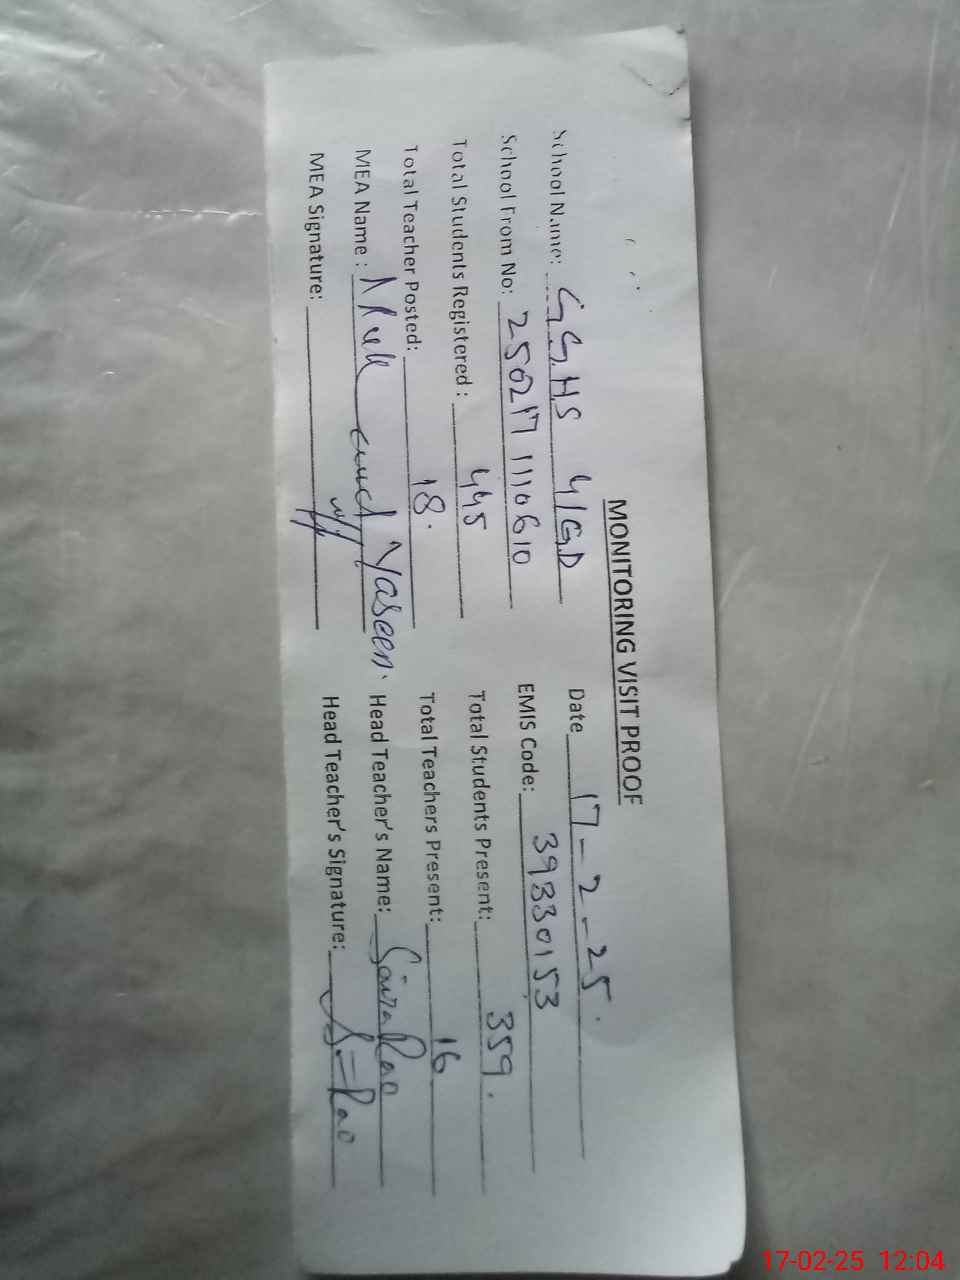 MONITORING VISIT PROOF
School Name: G.G.HS 4/G.D Date 17-2-25.
School From No: 250217 1110610 EMIS Code: 39330153
Total Students Registered: 445 Total Students Present: 359.
Total Teacher Posted: 18. Total Teachers Present: 16
MEA Name: Yaseen. Head Teacher's Name: Saira Rao
MEA Signature: Head Teacher's Signature: S=Rao
17-02-25 12:04